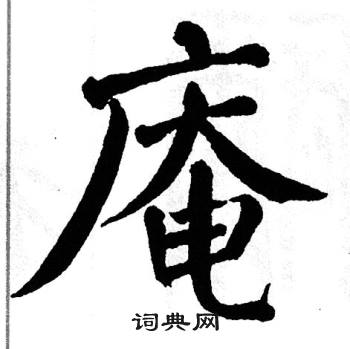 庵
词典网